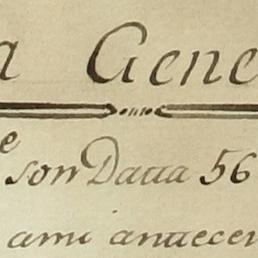 a Gene
e son Data 56
ami antecen